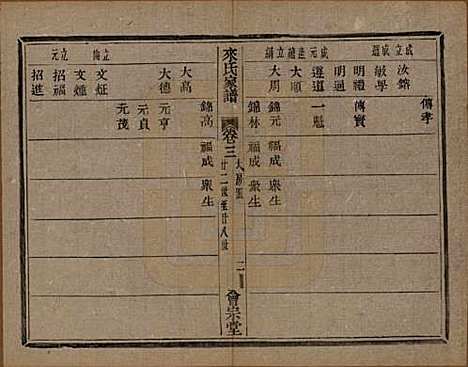 傳孝
成立 成道
汝鎔
敏學
明通
明禮 傳賓
成元 進道 立鎬
遵道 一魁
大順
大周 錦元 福成 衆生
錦林 福成 衆生
來氏家譜 卷三 大房 廿二世至廿八世 二 會宗堂
錦高 福成 衆生
大高
大德 元亨
元貞
元茂
立
文炡
文煄
立元
招福
招進